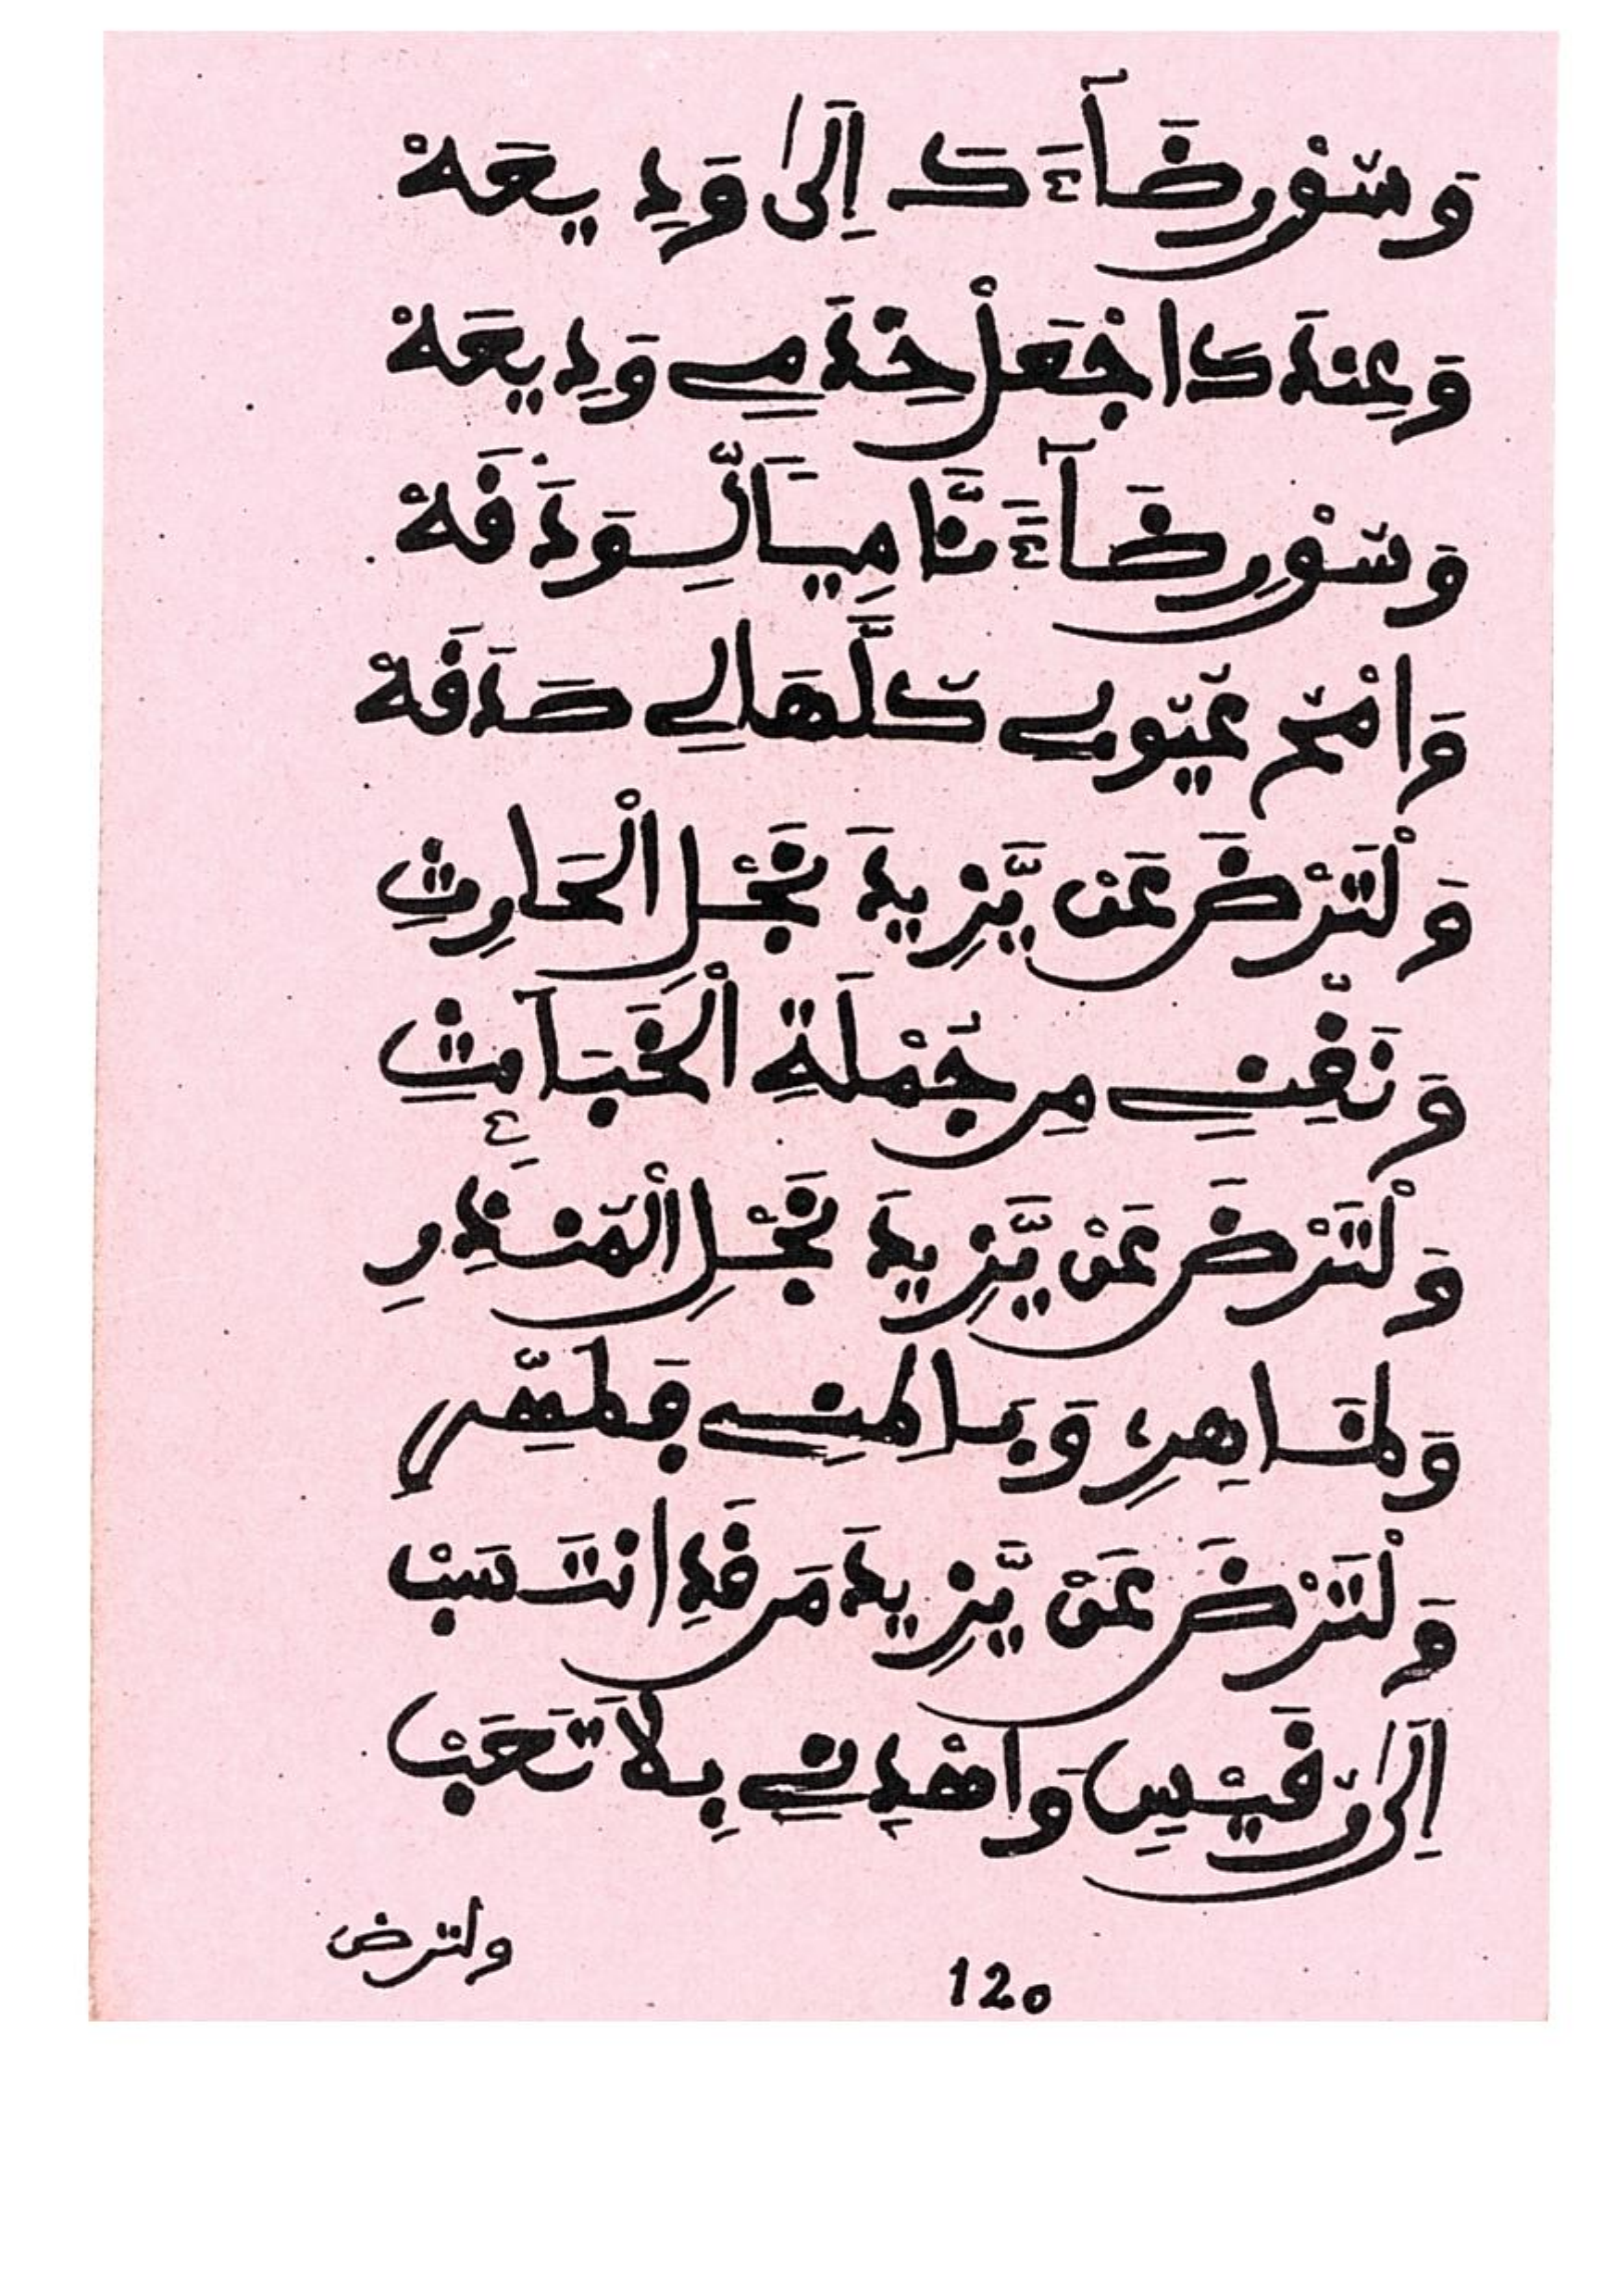 وَسُقْ رِضَآءَكَ إِلَىٰ وَدِيعَهْ
وَعِندَكَ اجْعَلْ خِدَمِي وَدِيعَهْ
وَسُقْ رِضَآءً نَّامِيًا لِّوَدَقَهْ
وَامْحُ عُيُوبِي كُلَّهَا لِي صَدَقَهْ
وَلْتَرْضَ عَنْ يَّزِيدَ نَجْلِ الْحَارِثِ
وَنَقِّنِي مِن جُمْلَةِ الْخَبَآئِثِ
وَلْتَرْضَ عَنْ يَّزِيدَ نَجْلِ الْمُنذِرِ
وَظَاهِرِي وَبَاطِنِي فَطَهِّرِ
وَلْتَرْضَ عَنْ يَّزِيدَ مَن قَدِ انتَسَبْ
إِلَىٰ رُقَيْسٍ وَاهْدِنِي بِلَا تَعَبْ
ولترض
120